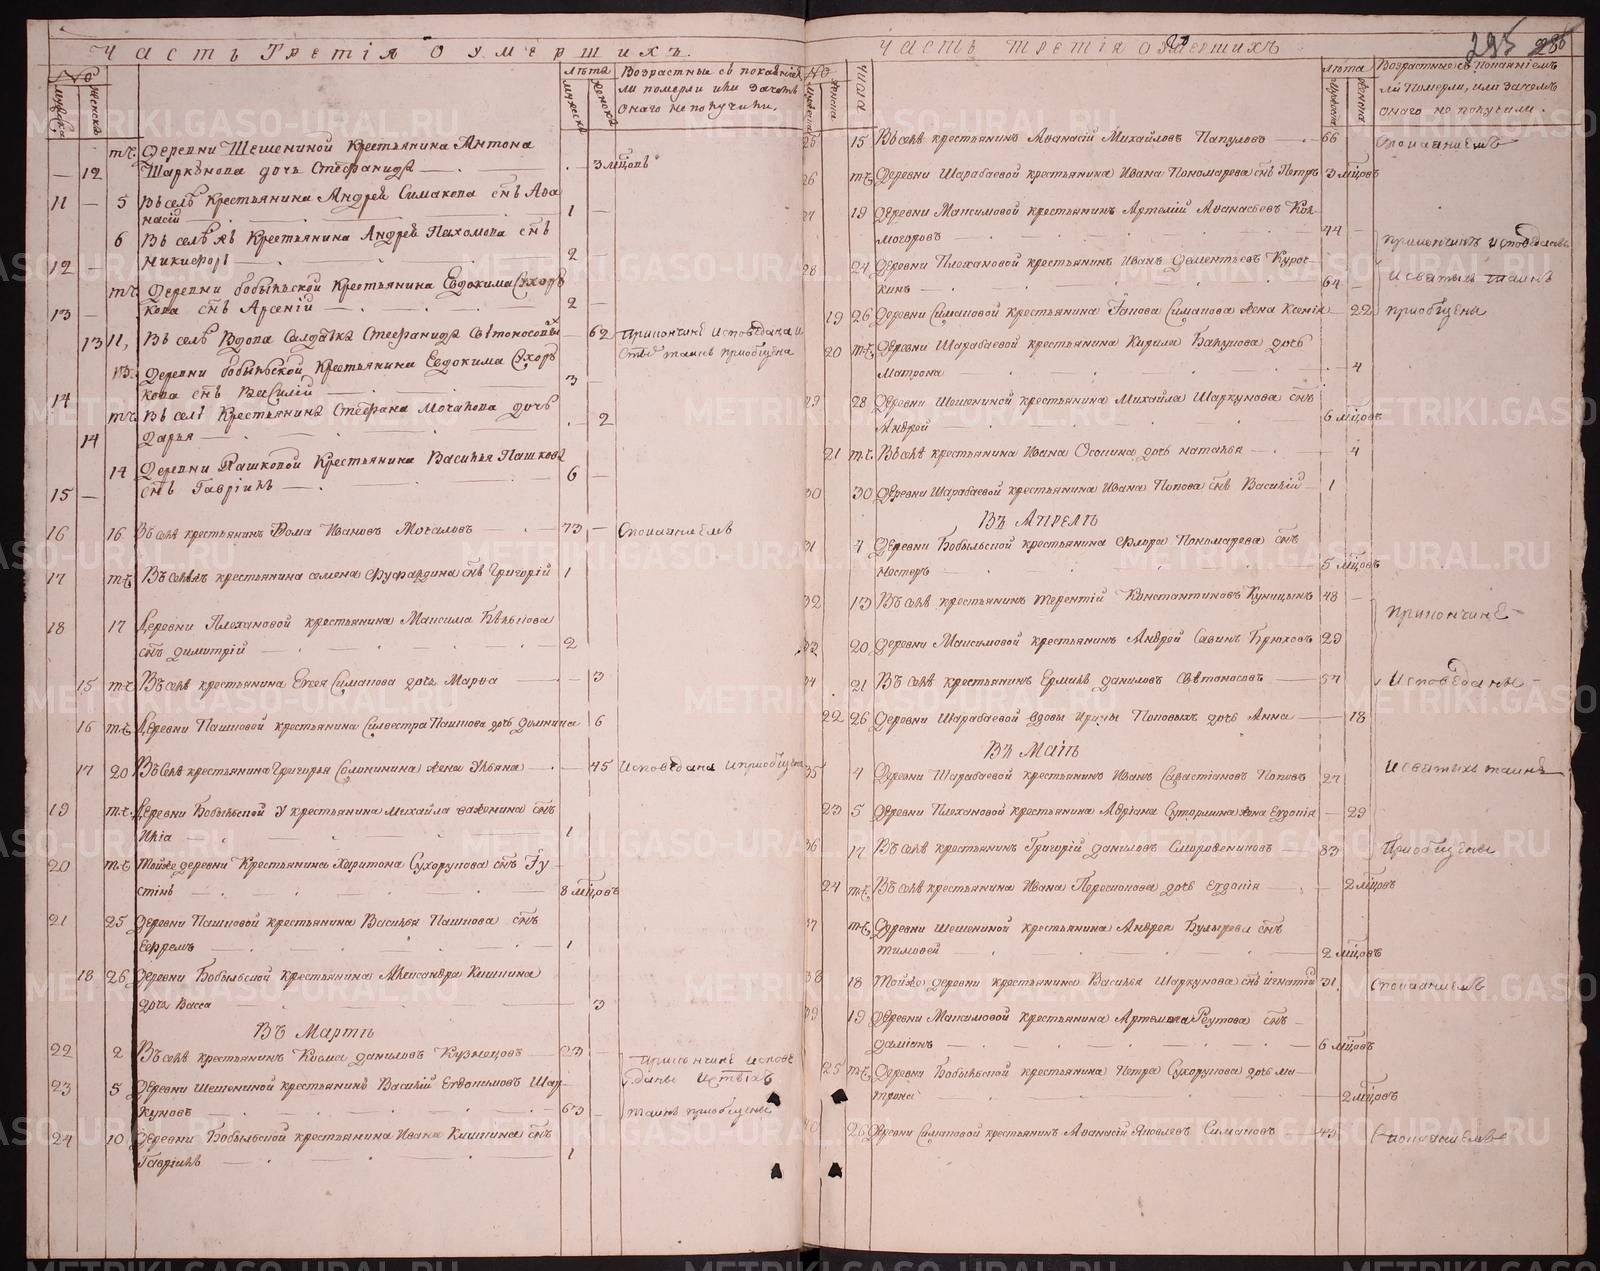 Часть Третія о умершихъ.
№
мужска
женска
Лѣта
мужска
женска
Возрастные съ покаяніем
ли померли или зачемъ
онаго не получили.
— 12 тч. Деревни Шешениной Крестьянина Антона
Шаркунова дочь Стефанида — 3 мцовъ
11 — 5 Въ селѣ Крестьянина Андрея Симакова снъ Афа
насій — 1 —
6 Въ селѣ Крестьянина Андрея Пахомова снъ
12 — Никифоръ — 2
тч. Деревни Бобыльской Крестьянина Евдокима Сухору
13 — кова снъ Арсеній — 2 —
13 11, Въ селѣ Вдова Салдатка Стефанида Свѣтоносова — 62 Приполчинѣ исповедана и
Стыхъ таинъ приобщена
Деревни Бобыльской Крестьянина Евдокима Сухору
14 кова снъ Василій — 3 —
тч. Въ селѣ Крестьянина Стефана Мочалова дочь
14 Дарья — 2
14 Деревни Пашковой Крестьянина Василья Пашкова
15 — снъ Гавріилъ — 6 —
16 16 Въ селѣ крестьянинъ Фома Ивановъ Мочаловъ — 73 — Спокаяниемъ
17 тч. Въ селѣ крестьянина Семена Фуфардина снъ Григорій 1
18 17 Деревни Плехановой крестьянина Максима Бѣльнова
снъ Димитрій — 2
15 тч. Въ селѣ крестьянина Евсея Симанова дочь Марфа — 3
16 тч. Деревни Пашковой крестьянина Силвестра Пашкова дочь Домника 6
17 20 Въ селѣ крестьянина Григорья Солонинина жена Ульяна — 45 Исповѣдана и приобщена
19 тч. Деревни Бобыльской У крестьянина Михайла Важенина снъ
Илія — 1
20 тч. Тойже деревни Крестьянина Харитона Сухорукова снъ Іу
стинъ — 8 мцовъ
21 25 Деревни Пашковой крестьянина Василья Пашкова снъ
Ефремъ — 1
18 26 Деревни Бобыльской крестьянина Александра Кишкина
дочь Васса 3
Въ Мартѣ
22 2 Въ селѣ крестьянинъ Козма Даниловъ Кузнецовъ — 23 — Приполчинѣ исповѣ
23 5 Деревни Шешениной крестьянинъ Василій Евдокимовъ Шар- даны и Стыхъ
куновъ — 63 — таинъ приобщены
24 10 Деревни Бобыльской крестьянина Ивана Кишкина снъ
Гавріилъ — 1
Часть третія о умершихъ
295
№
мужска
женска
Числа
Лѣта
мужска
женска
Возрастные съ покаяніемъ
ли померли, или зачемъ
онаго не получили.
25 15 Въ селѣ крестьянинъ Афанасій Михайловъ Папулово — 66 Спокаяниемъ
26 тч. Деревни Шарабаевой крестьянина Ивана Пономарева снъ Петръ 3 мцовъ
27 19 Деревни Максимовой крестьянинъ Артемій Афанасьевъ Кол-
могоровъ — 44 —
28 24 Деревни Плехановой крестьянинъ Иванъ Дементьевъ Куроч-
кинъ — 64 —
Приполчинѣ исповеданы
И святыхъ таинъ
приобщены
19 26 Деревни Симановой крестьянина Іакова Симанова жена Ксенія — 22
20 тч. Деревни Шарабаевой крестьянина Кирила Бакунова дочь
Матрона — 4
29 28 Деревни Шешениной крестьянина Михайла Шаркунова снъ
Андрей — 6 мцовъ
21 тч. Въ селѣ крестьянина Ивана Осокина дочь Наталья — 4
30 30 Деревни Шарабаевой крестьянина Ивана Попова снъ Василій — 1
Въ Апрелѣ
31 4 Деревни Бобыльской крестьянина Флора Пономарева снъ
Несторъ — 5 мцовъ
32 13 Въ селѣ крестьянинъ Терентій Константиновъ Куницынъ 48 —
33 20 Деревни Максимовой крестьянинъ Андрей Савинъ Брюховъ 29
34 21 Въ селѣ крестьянинъ Ермилъ Даниловъ Свѣтоносовъ — 57
22 26 Деревни Шарабаевой вдовы Ирины Поповыхъ дочь Анна — 18
Приполчинѣ
Исповѣданы
И святыхъ таинъ
Приобщены
Въ Маіѣ
35 4 Деревни Шарабаевой крестьянинъ Иванъ Савастіановъ Поповъ 27
23 5 Деревни Плехановой крестьянина Адріана Сутормина жена Евдокія — 29
36 17 Въ селѣ крестьянинъ Григорій Даниловъ Смородениковъ — 83
24 тч. Въ селѣ крестьянина Ивана Пересыпкова дочь Евдокія — 2 мцовъ
37 тч. Деревни Шешениной крестьянина Андрея Булырева снъ
Тимофей — 2 мцовъ
38 18 Тойже деревни крестьянина Василья Шаркунова снъ Игнатій 31. Спокаяниемъ
39 19 Деревни Максимовой крестьянина Артемія Реутова снъ
Даміанъ — 6 мцовъ
25 тч. Деревни Бобыльской крестьянина Петра Сухорукова дочь Ма-
трона — 2 мцовъ
40 26 Деревни Симановой крестьянинъ Афанасій Яковлевъ Симановъ — 45 Спокаяниемъ
METRIKI.GASO-URAL.RU